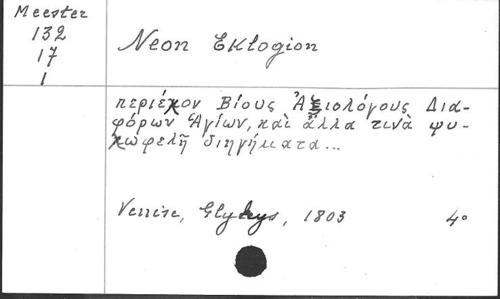 Meester
132
17
1
Neon Eklogion
περιέχον Βίους Ἀξιολόγους Δια-
φόρων Ἁγίων, καὶ ἄλλα τινὰ ψυ-
χωφελῆ διηγήματα...
Venise, Glykys, 1803 4°